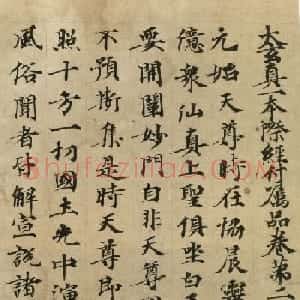 太玄真一本際經付屬品卷第二
元始天尊時在協晨靈
億衆仙真上聖俱坐白玉
要開闡妙門自非天尊
不預斯集是時天尊即
照十方一切國土光中演
風俗聞者悟解宣說諸